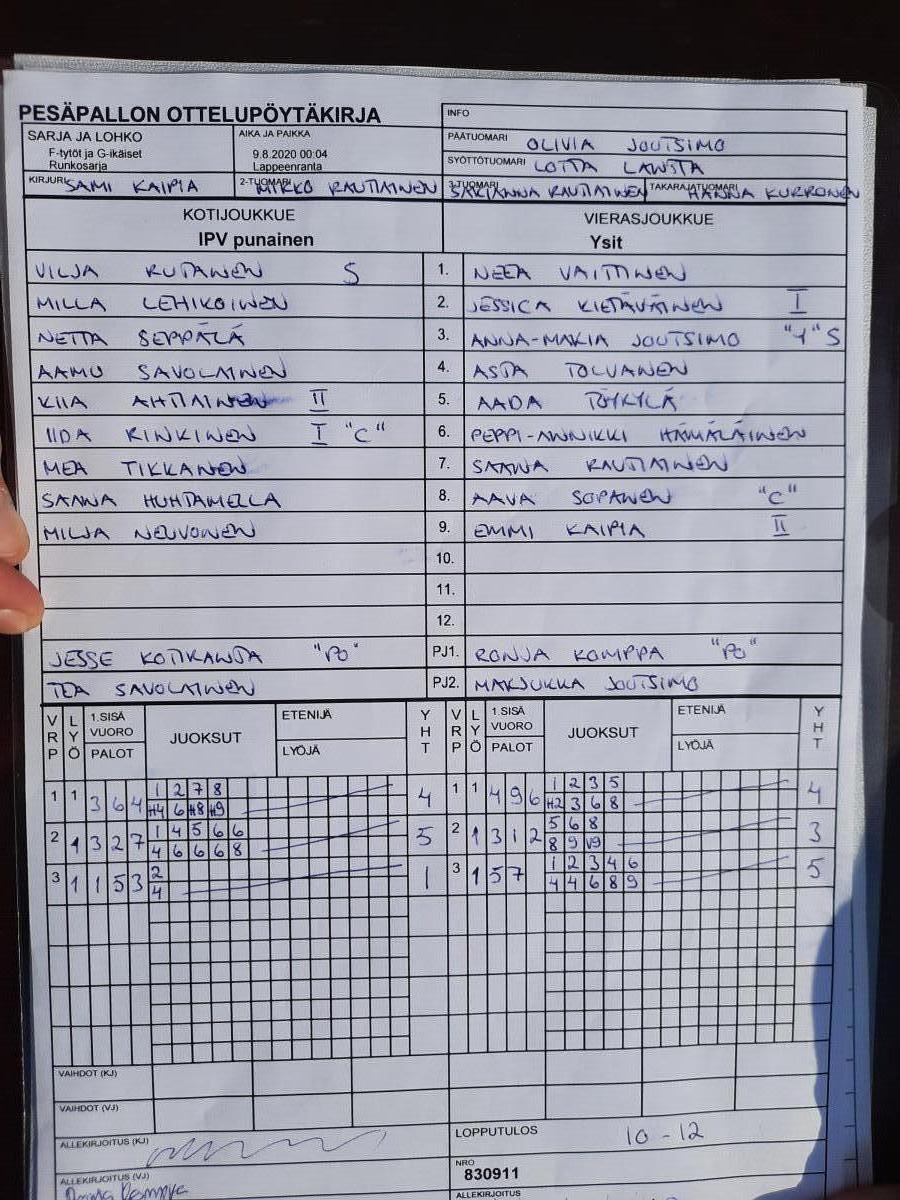 PESÄPALLON OTTELUPÖYTÄKIRJA
INFO
SARJA JA LOHKO
F-tytöt ja G-ikäiset
Runkosarja
AIKA JA PAIKKA
9.8.2020 00:04
Lappeenranta
PÄÄTUOMARI OLIVIA JOUTSIMO
SYÖTTÖTUOMARI LOTTA
KIRJURI SAMI KAIPIA
2-TUOMARI MIKKO RAUTIAINEN
3-TUOMARI SARIANNA RAUTIAINEN
TAKARAJATUOMARI HANNA KURRONEN
KOTIJOUKKUE
IPV punainen
VIERASJOUKKUE
Ysit
VILJA RUTANEN S 1. NEEA VAITTINEN
MILLA LEHIKOINEN 2. JESSICA KIETÄVÄINEN I
NETTA SEPPÄLÄ 3. ANNA-MARIA JOUTSIMO "1" S
AAMU SAVOLAINEN 4. ASTA TOLVANEN
KIIA AHTIAINEN II 5. AADA TÖYRYLÄ
IIDA RINKINEN I "C" 6. PEPPI-ANNIKKI HÄMÄLÄINEN
MEA TIKKANEN 7. SAANA RAUTIAINEN
SAANA HUHTAMELLA 8. AAVA SOPANEN "C"
MILJA NEUVONEN 9. EMMI KAIPIA II
10.
11.
12.
JESSE KOTKANSA "PO" PJ1. RONJA KOMPPA "PO"
TEA SAVOLAINEN PJ2. MARJUKKA JOUTSIMO
VRP LYÖ 1.SISÄ VUORO PALOT JUOKSUT ETENIJÄ LYÖJÄ YHT VRP LYÖ 1.SISÄ VUORO PALOT JUOKSUT ETENIJÄ LYÖJÄ YHT
1 2 7 8 1 2 3 5
1 1 3 6 4 H4 6 H8 H9 4 1 1 4 9 6 H2 3 6 8 4
1 4 5 6 6 5 6 8
2 1 3 2 7 4 6 6 6 8 5 2 1 3 1 2 8 9 V9 3
2 1 2 3 4 6
3 1 1 5 3 4 1 3 1 5 7 4 4 6 8 9 5
VAIHDOT (KJ)
VAIHDOT (VJ)
ALLEKIRJOITUS (KJ)
LOPPUTULOS 10 - 12
ALLEKIRJOITUS (VJ)
NRO
830911
ALLEKIRJOITUS